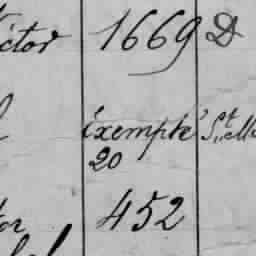 ictor 1669 D
Exempté St
20
tor 452